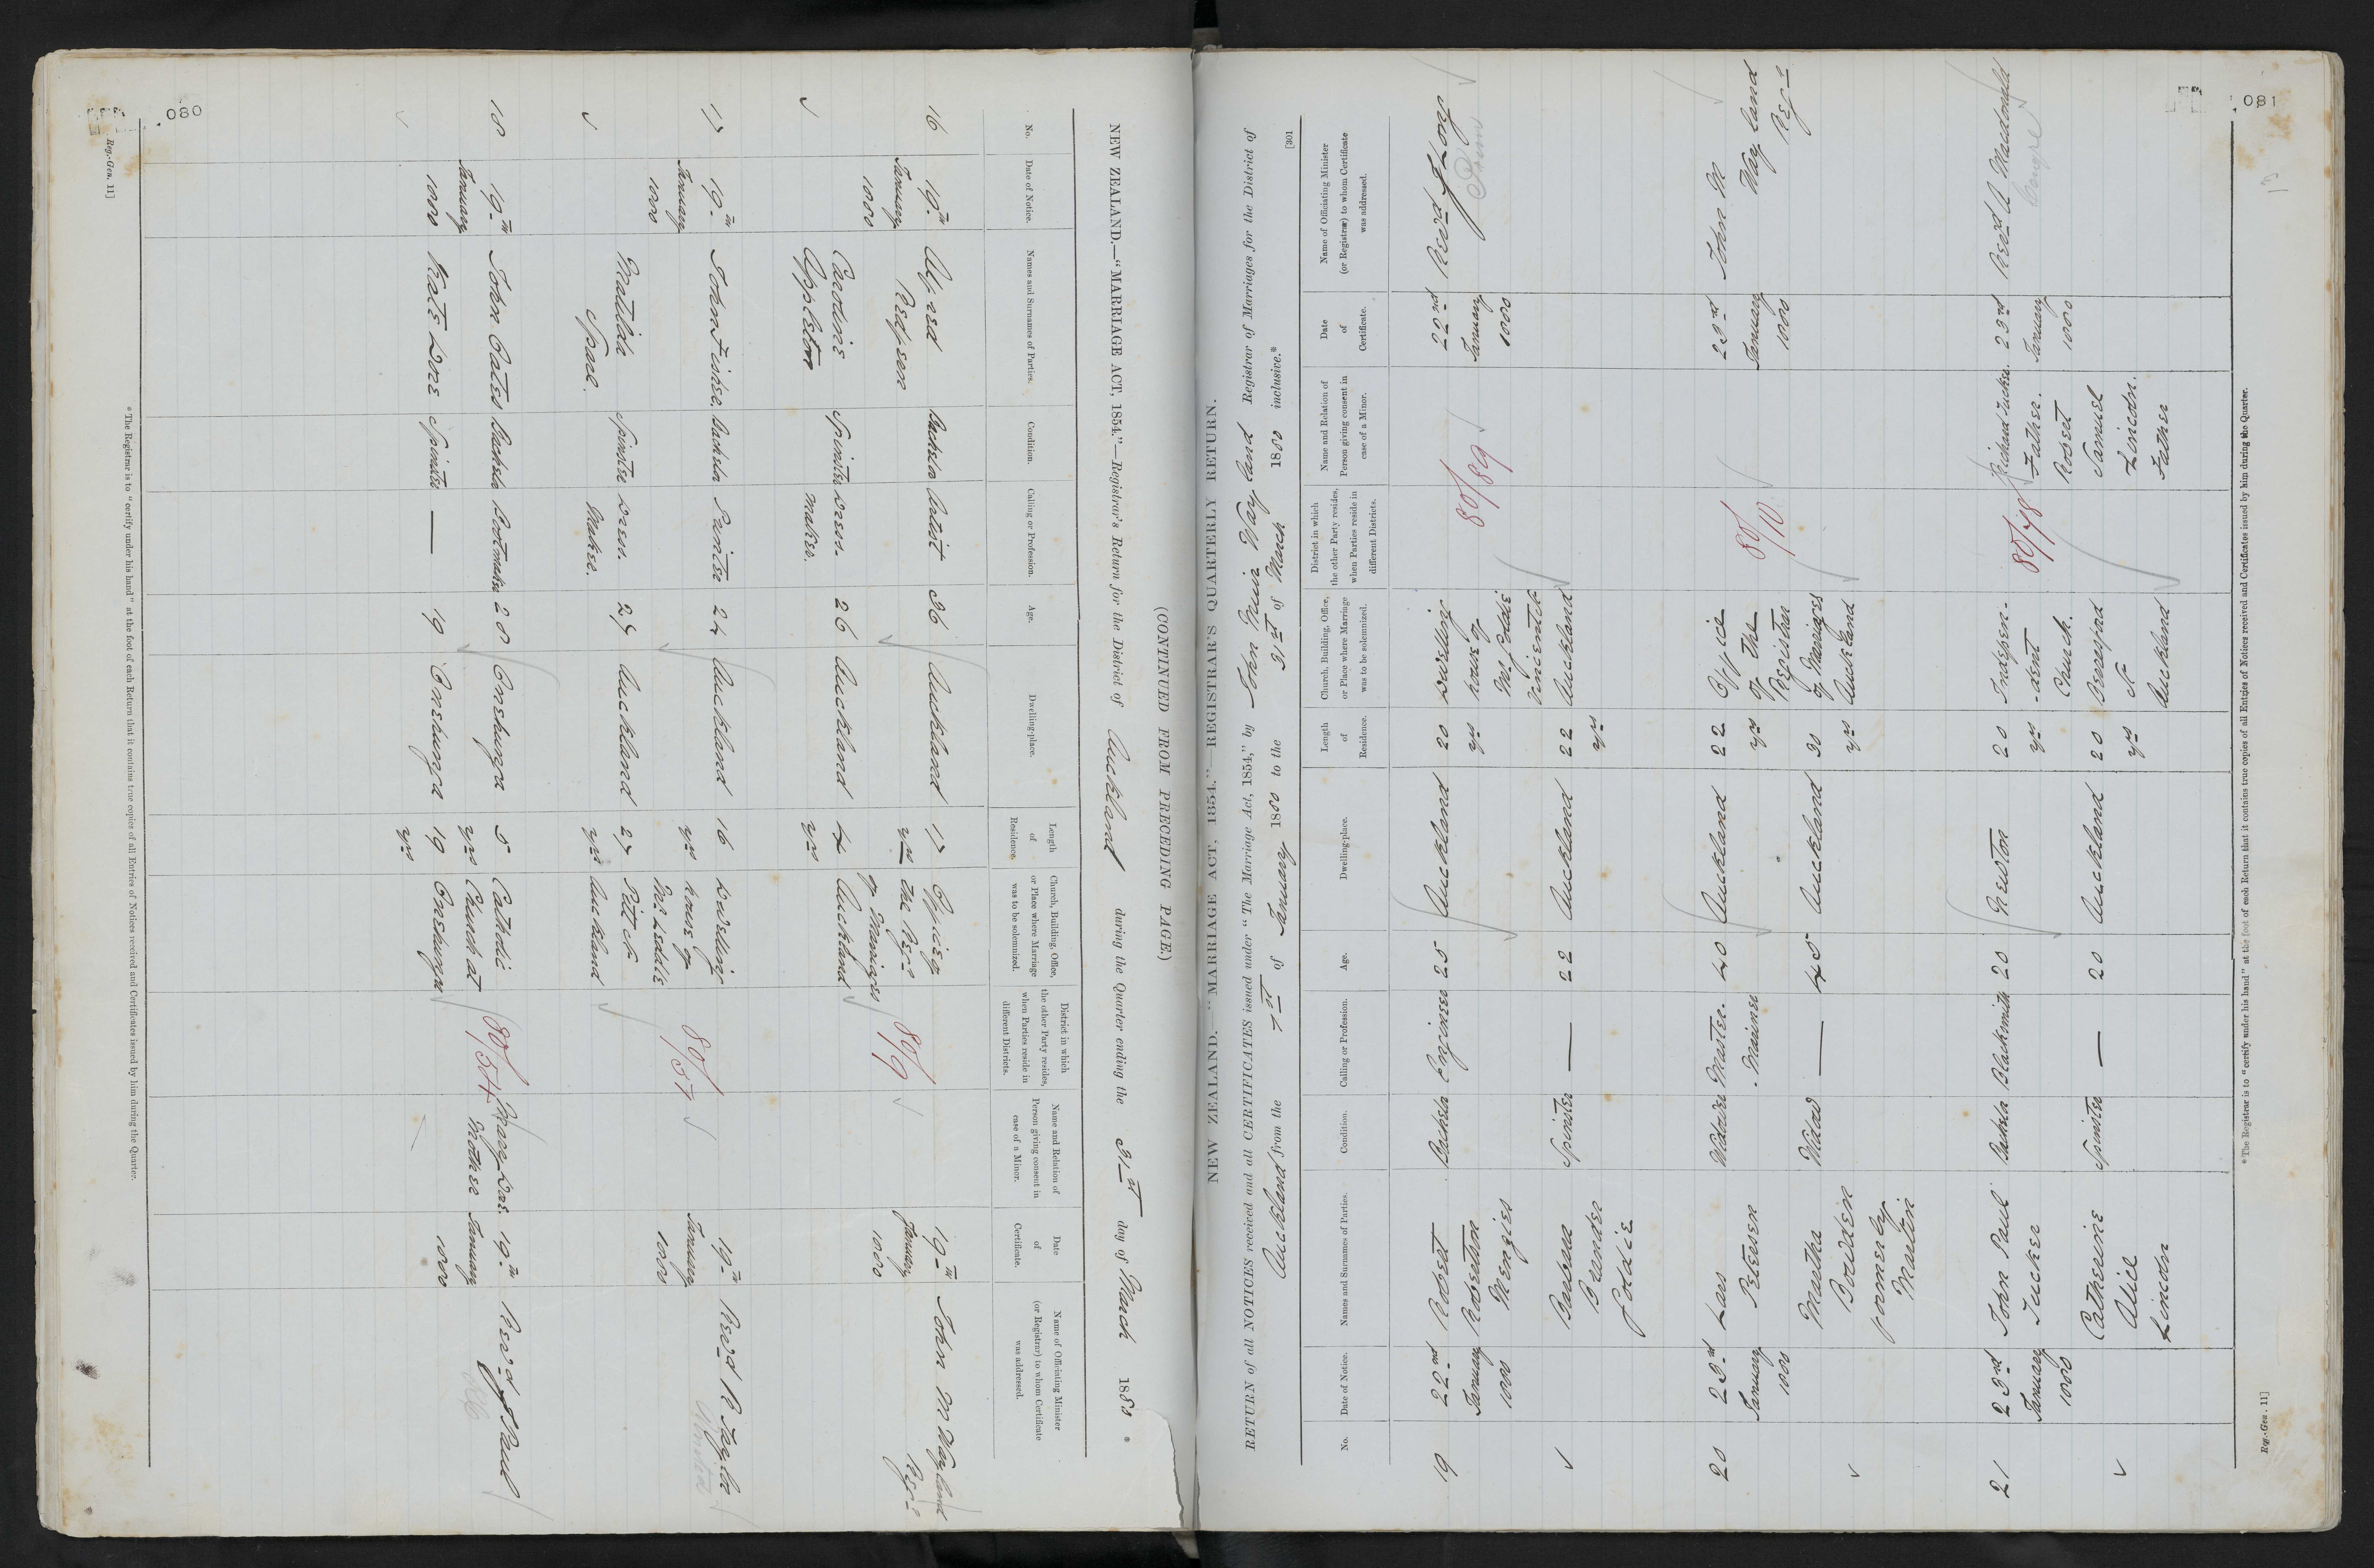 080
NEW ZEALAND.—"MARRIAGE ACT, 1854."—Registrar's Return for the District of Auckland during the Quarter ending the 31st day of March 1880 *
(CONTINUED FROM PRECEDING PAGE.)
No.
Date of Notice.
Names and Surnames of Parties.
Condition.
Calling or Profession.
Age.
Dwelling-place.
Length of Residence.
Church, Building, Office, or Place where Marriage was to be solemnized.
District in which the other Party resides, when Parties reside in different Districts.
Name and Relation of Person giving consent in case of a Minor.
Date of Certificate.
Name of Officiating Minister (or Registrar) to whom Certificate was addressed.
16
19th January 1880
Alfred
Caroline Appleton
Bachelor
Spinster
Artist
Dress-maker.
36
26
Auckland
Auckland
17 yrs
4 yrs
Office of the Regr of Marriages Auckland
80/9
19th January 1880
John M Wayland Regr
17
19th January 1880
John Fisher.
Matilda
Bachelor
Spinster
Painter
Dress-Maker.
24
27
Auckland
Auckland
16 yrs
27 yrs
Dwelling house of Mr Leddle Pitt St Auckland
80/57
19th January 1880
Revd R Taylor
18
19th January 1880
John Cates
Kate Dore
Bachelor
Spinster
Bootmaker
—
28
19
Onehunga
Onehunga
5 yrs
19 yrs
Catholic Church at Onehunga
80/54
Mary Dore. Mother
19th January 1880
Revd J Paul
* The Registrar is to "certify under his hand" at the foot of each Return that it contains true copies of all Entries of Notices received and Certificates issued by him during the Quarter.
Reg.-Gen. 11]
081
[301
NEW ZEALAND.—"MARRIAGE ACT, 1854."—REGISTRAR'S QUARTERLY RETURN.
RETURN of all NOTICES received and all CERTIFICATES issued under "The Marriage Act, 1854," by John Muir Wayland Registrar of Marriages for the District of
Auckland from the 1st of January 1880 to the 31st of March 1880 inclusive.*
No.
Date of Notice.
Names and Surnames of Parties.
Condition.
Calling or Profession.
Age.
Dwelling-place.
Length of Residence.
Church, Building, Office, or Place where Marriage was to be solemnized.
District in which the other Party resides, when Parties reside in different Districts.
Name and Relation of Person giving consent in case of a Minor.
Date of Certificate.
Name of Officiating Minister (or Registrar) to whom Certificate was addressed.
19
22nd January 1880
Robert Robertson Menzies
Barbara Goldie
Bachelor
Spinster
Engineer
—
25
22
Auckland
Auckland
20 yrs
22 yrs
Dwelling house of Mr Goldie Vincent St Auckland
80/89
22nd January 1880
Revd J Long
Prim
20
23rd January 1880
Lars Petersen
Martha Bowden formerly Martin
Widower
Widow
Master-Mariner
—
40
45
Auckland
Auckland
22 yrs
30 yrs
Office of the Registrar of Marriages Auckland
80/10
23rd January 1880
John M Wayland Regr
21
23rd January 1880
John Paul Tucker
Catherine Alice Lincoln
Bachelor
Spinster
Blacksmith
—
20
20
Newton
Auckland
20 yrs
20 yrs
Independent Church. Beresford St Auckland
80/78
Richard Tucker. Father.
Robert Samuel Lincoln. Father
23rd January 1880
Revd A Macdonald
Congre
* The Registrar is to "certify under his hand" at the foot of each Return that it contains true copies of all Entries of Notices received and Certificates issued by him during the Quarter.
Reg.-Gen. 11]